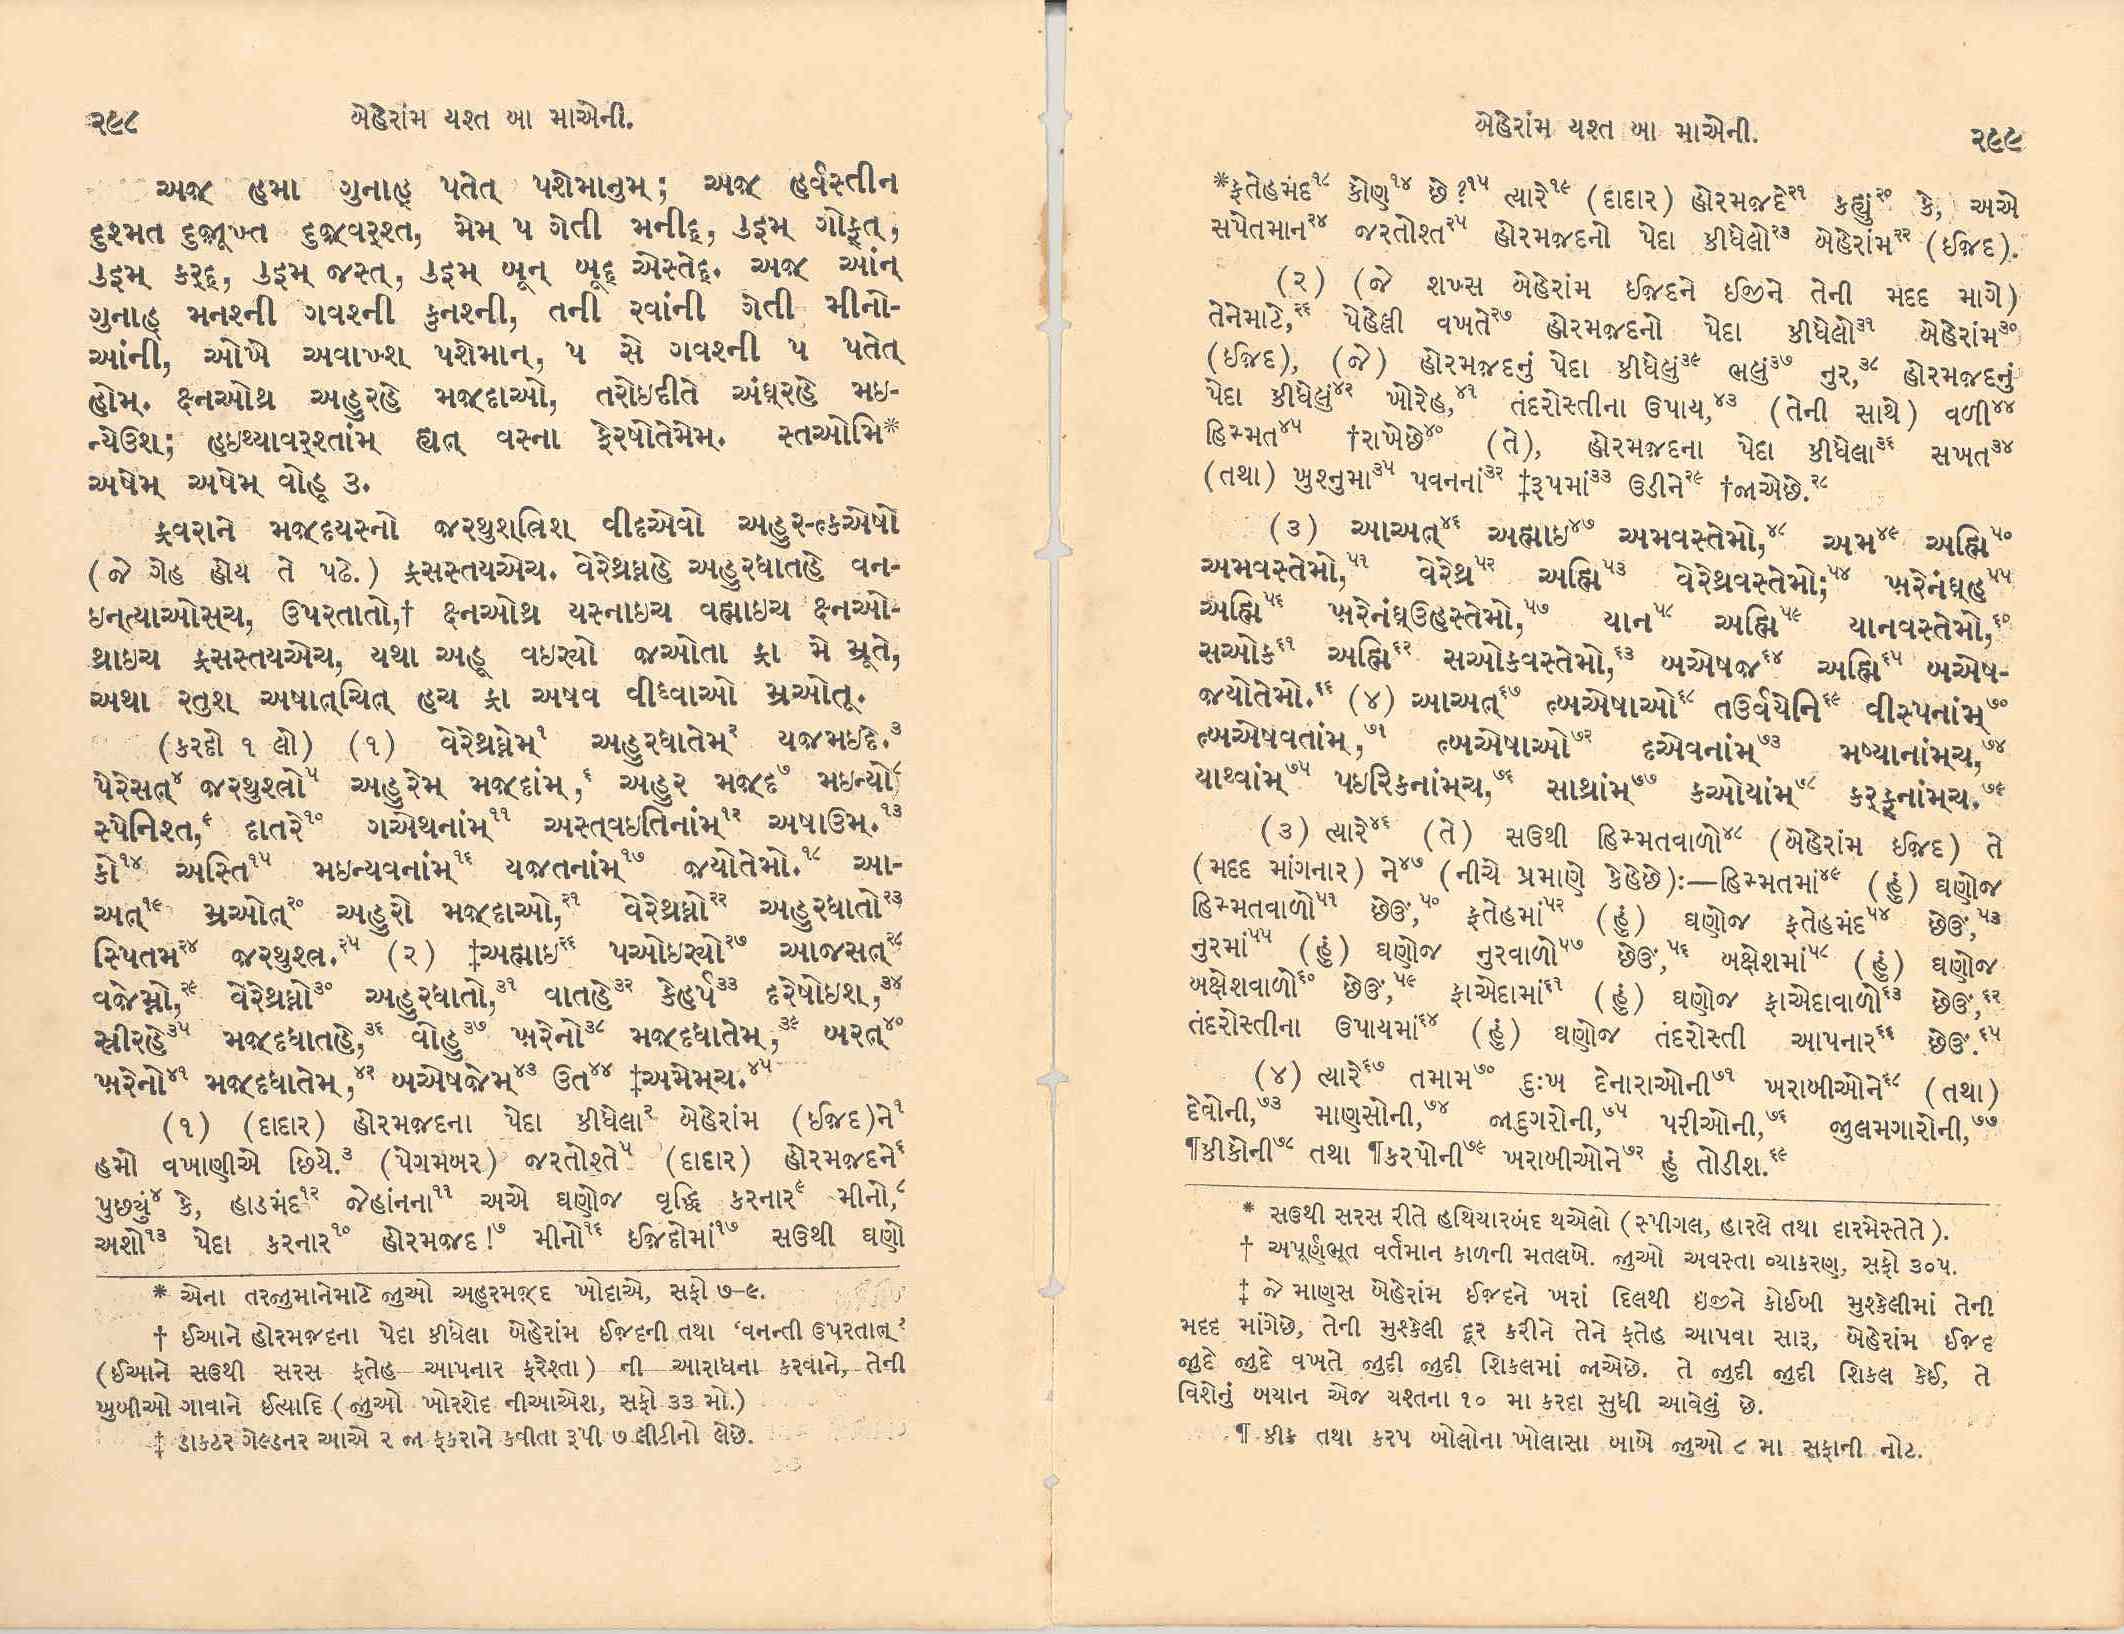 ૨૯૮
બેહેરાંમ યશ્ત બા માએની.
અજ઼્ હમા ગુનાહ્ પતેત્ પશેમાનુમ્; અજ઼્ હર્વસ્તીન
દુશ્મત દુજ઼ૂખ્ત દુજ઼્વર્‌શ્ત, મેમ્ પ ગેતી મનીદ્, ઉઇમ્ ગોફ્ત્,
ઉઇમ્ કર્‌દ્, ઉઇમ્ જસ્ત્, ઉઇમ્ બૂન્ બૂદ્ એસ્તેદ્. અજ઼ આંન્
ગુનાહ્ મનશ્ની ગવશ્ની કુનશ્ની, તની રવાંની ગેતી મીનો-
આંની, ઓખે અવાખ્શ્ પશેમાન્, પ સે ગવશ્ની પ પતેત્
હોમ્. ક્ષ્નઓથ્ર અહુરહે મજ઼્દાઓ, તરોઇદીતે અંઘ્રહે મઇ-
ન્યેઉશ; હઇથ્યાવર્‌શ્તાંમ્ હ્યત્ વસ્ના ફેરષોતેમેમ્. સ્તઓમિ*
અષેમ્ અષેમ્ વોહૂ ૩.
ફ્રવરાને મજ઼્દયસ્નો જ઼રથુશ્ત્રિશ્ વીદએવો અહુર-ત્કએષો
(જે ગેહ હોય તે પઢે.) ફ્રસસ્તયએચ. વેરેથ્રઘ્નહે અહુરધાતહે વન-
ઇન્ત્યાઓસ્ચ, ઉપરતાતો,† ક્ષ્નઓથ્ર યસ્નાઇચ વહ્માઇચ ક્ષ્નઓ-
થ્રાઇચ ફ્રસસ્તયએચ, યથા અહૂ વઇર્યો જ઼ઓતા ફ્રા મે મ્રૂતે,
અથા રતુશ્ અષાત્‌ચિત્ હચ ફ્રા અષવ વીધ્વાઓ મ્રઓતૂ.
(કરદો ૧ લો) (૧) વેરેથ્રઘ્નેમ્૧ અહુરધાતેમ્૨ યજ઼મઇદે.૩
પેરેસત્૪ જ઼રથુશ્ત્રો૫ અહુરેમ્ મજ઼્દાંમ્,૬ અહુર મજ઼્દ૭ મઇન્યો૮
સ્પેનિશ્ત,૯ દાતરે૧૦ ગએથનાંમ્૧૧ અસ્ત્વઇતિનાંમ્૧૨ અષાઉમ્.૧૩
કો૧૪ અસ્તિ૧૫ મઇન્યવનાંમ્૧૬ યજ઼તનાંમ્૧૭ જ઼યોતેમો.૧૮ આ-
અત્૧૯ મ્રઓત્૨૦ અહુરો મજ઼્દાઓ,૨૧ વેરેથ્રઘ્નો૨૨ અહુરધાતો૨૩
સ્પિતમ૨૪ જ઼રથુશ્ત્ર.૨૫ (૨) ‡અહ્માઇ૨૬ પઓઇર્યો૨૭ આજસત્૨૮
વજ઼ેમ્નો,૨૯ વેરેથ્રઘ્નો૩૦ અહુરધાતો,૩૧ વાતહે૩૨ કેહર્પ૩૩ દરેષોઇશ્,૩૪
સ્રીરહે૩૫ મજ઼્દધાતહે,૩૬ વોહુ૩૭ ખ઼રેનો૩૮ મજ઼્દધાતેમ્,૩૯ બરત્૪૦
ખ઼રેનો૪૧ મજ઼્દધાતેમ્,૪૨ બએષજ઼ેમ્૪૩ ઉત૪૪ ‡અમેમ્ચ.૪૫
(૧) (દાદાર) હોરમજ઼દના પેદા કીધેલા૨ બેહેરાંમ (ઈજ઼દ)ને૧
હમો વખાણીએ છિયે.૩ (પેગમબર) જરતોશ્તે૫ (દાદાર) હોરમજ઼દને૬
પુછયું૪ કે, હાડમંદ૧૨ જેહાંનના૧૧ અએ ઘણોજ વૃદ્ધિ કરનાર૯ મીનો,૮
અશો૧૩ પેદા કરનાર૧૦ હોરમજ઼દ!૭ મીનો૧૬ ઈજ઼દોમાં૧૭ સઉથી ઘણો
* એના તરજુમાનેમાટે જુઓ અહુરમજ઼્દ ખોદાએ, સફો ૭-૯.
† ઈઆને હોરમજ઼દના પેદા કીધેલા બેહેરાંમ ઈજ઼દની તથા ‘વનન્તી ઉપરતાત્’
(ઈઆને સઉથી સરસ ફતેહ આપનાર ફરેશ્તા) ની આરાધના કરવાને, તેની
ખુબીઓ ગાવાને ઈત્યાદિ (જુઓ ખોરશેદ નીઆએશ, સફો ૩૩ મો.)
‡ ડાકટર ગેલ્ડનર આએ ૨ જા ફકરાને કવીતા રૂપી ૭ લીટીનો લેછે.
બેહેરાંમ યશ્ત બા માએની.
૨૯૯
*ફતેહમંદ૧૮ કોણ૧૪ છે?૧૫ ત્યારે૧૯ (દાદાર) હોરમજ઼દે૨૧ કહ્યું૨૦ કે, અએ
સપેતમાન૨૪ જરતોશ્ત૨૫ હોરમજ઼દનો પેદા કીધેલો૨૩ બેહેરાંમ૨૨ (ઈજ઼દ).
(૨) (જે શખ્સ બેહેરાંમ ઈજ઼દને ઈજીને તેની મદદ માગે)
તેનેમાટે,૨૬ પેહેલી વખતે૨૭ હોરમજ઼દનો પેદા કીધેલો૩૧ બેહેરાંમ૩૦
(ઈજ઼દ), (જે) હોરમજ઼દનું પેદા કીધેલું૩૯ ભલું૩૭ નુર,૩૮ હોરમજ઼દનું
પેદા કીધેલું૪૨ ખોરેહ,૪૧ તંદરોસ્તીના ઉપાય,૪૩ (તેની સાથે) વળી૪૪
હિમ્મત૪૫ †રાખેછે૪૦ (તે), હોરમજ઼દના પેદા કીધેલા૩૬ સખત૩૪
(તથા) ખુશ્નુમા૩૫ પવનનાં૩૨ ‡રૂપમાં૩૩ ઉડીને૨૯ †જાએછે.૨૮
(૩) આઅત્૪૬ અહ્માઇ૪૭ અમવસ્તેમો,૪૮ અમ૪૯ અહ્મિ૫૦
અમવસ્તેમો,૫૧ વેરેથ્ર૫૨ અહ્મિ૫૩ વેરેથ્રવસ્તેમો;૫૪ ખ઼રેનંઘ્હ૫૫
અહ્મિ૫૬ ખ઼રેનંઘ્ઉહસ્તેમો,૫૭ યાન૫૮ અહ્મિ૫૯ યાનવસ્તેમો,૬૦
સઓક૬૧ અહ્મિ૬૨ સઓકવસ્તેમો,૬૩ બએષજ઼૬૪ અહ્મિ૬૫ બએષ-
જ઼યોતેમો.૬૬ (૪) આઅત્૬૭ ત્બએષાઓ૬૮ તઉર્વયેનિ૬૯ વીસ્પનાંમ્૭૦
ત્બએષવતાંમ્,૭૧ ત્બએષાઓ૭૨ દએવનાંમ્૭૩ મષ્યાનાંમ્ચ,૭૪
યાથ્વાંમ્૭૫ પઇરિકનાંમ્ચ,૭૬ સાથ્રાંમ્૭૭ કઓયાંમ્૭૮ કરફ્નાંમ્ચ.૭૯
(૩) ત્યારે૪૬ (તે) સઉથી હિમ્મતવાળો૪૮ (બેહેરાંમ ઈજ઼દ) તે
(મદદ માંગનાર) ને૪૭ (નીચે પ્રમાણે કેહેછે):—હિમ્મતમાં૪૯ (હું) ઘણોજ
હિમ્મતવાળો૫૧ છેઊં,૫૦ ફતેહમાં૫૨ (હું) ઘણોજ ફતેહમંદ૫૪ છેઊં,૫૩
નુરમાં૫૫ (હું) ઘણોજ નુરવાળો૫૭ છેઊં,૫૬ બક્ષેશમાં૫૮ (હું) ઘણોજ
બક્ષેશવાળો૬૦ છેઊં,૫૯ ફાએદામાં૬૧ (હું) ઘણોજ ફાએદાવાળો૬૩ છેઊં,૬૨
તંદરોસ્તીના ઉપાયમાં૬૪ (હું) ઘણોજ તંદરોસ્તી આપનાર૬૬ છેઊં.૬૫
(૪) ત્યારે૬૭ તમામ૭૦ દુઃખ દેનારાઓની૭૧ ખરાબીઓને૬૮ (તથા)
દેવોની,૭૩ માણસોની,૭૪ જાદુગરોની,૭૫ પરીઓની,૭૬ જુલમગારોની,૭૭
¶કીકોની૭૮ તથા ¶કરપોની૭૯ ખરાબીઓને૭૨ હું તોડીશ.૬૯
* સઉથી સરસ રીતે હથિયારબંદ થએલો (સ્પીગલ, હારલે તથા દારમેસ્તેતે).
† અપૂર્ણભૂત વર્તમાન કાળની મતલબે. જુઓ અવસ્તા વ્યાકરણ, સફો ૩૦૫.
‡ જે માણસ બેહેરાંમ ઈજ઼દને ખરાં દિલથી ઇજીને કોઈબી મુશ્કેલીમાં તેની
મદદ માંગેછે, તેની મુશ્કેલી દૂર કરીને તેને ફતેહ આપવા સારૂ, બેહેરાંમ ઈજ઼દ
જુદે જુદે વખતે જુદી જુદી શિકલમાં જાએછે. તે જુદી જુદી શિકલ કેઈ, તે
વિશેનું બયાન એજ યશ્તના ૧૦ મા કરદા સુધી આવેલું છે.
¶ કીક તથા કરપ બોલોના ખોલાસા બાબે જુઓ ૮ મા સફાની નોટ.